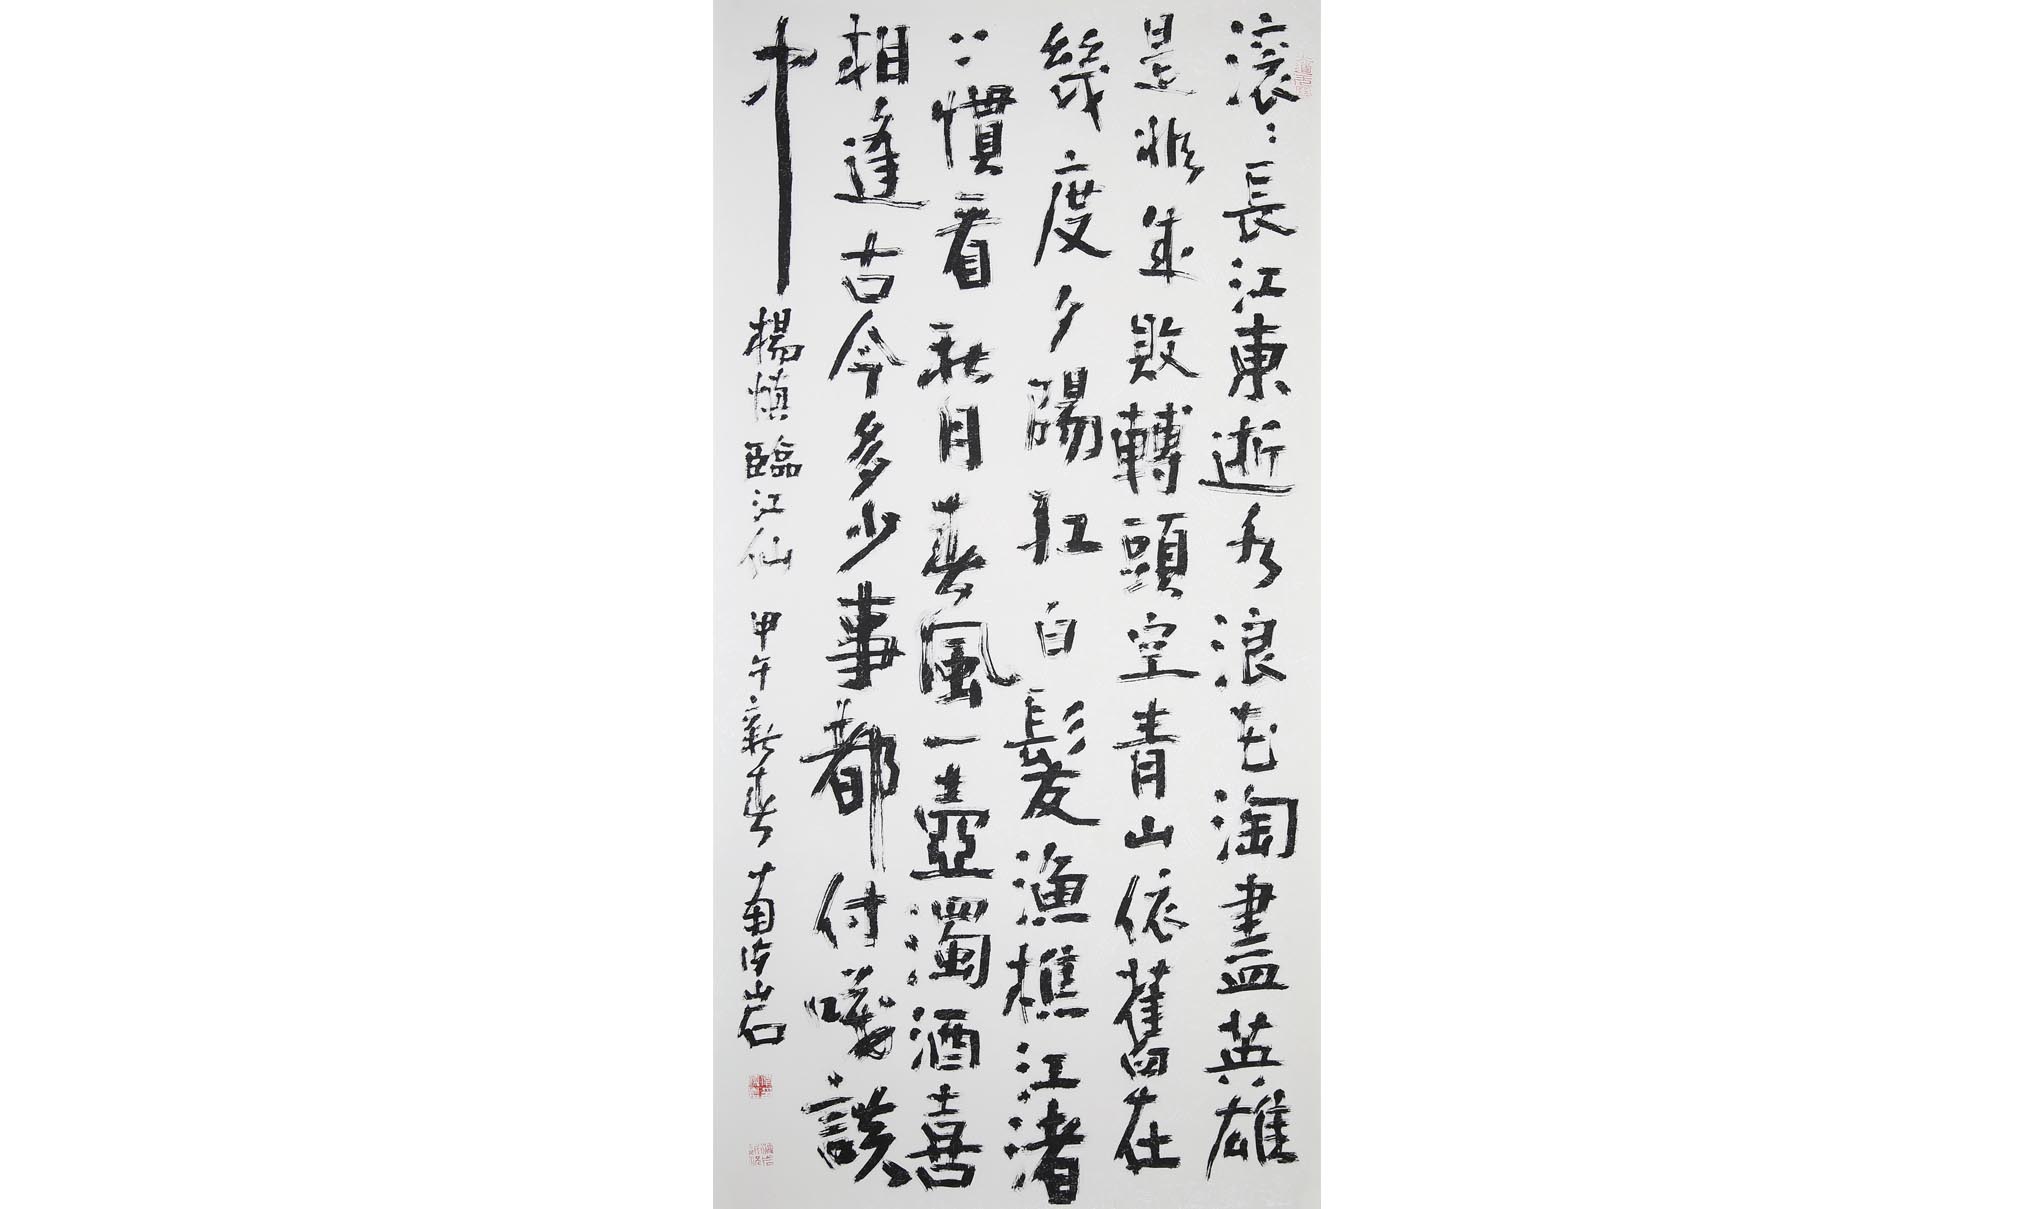 滚〻長江東逝水浪花淘盡英雄
是非成敗轉頭空青山依舊在
幾度夕陽紅白髮漁樵江渚
上慣看秋月春風一壺濁酒喜
相逢古今多少事都付咲談
中 楊慎臨江仙 甲午新春 南海岩